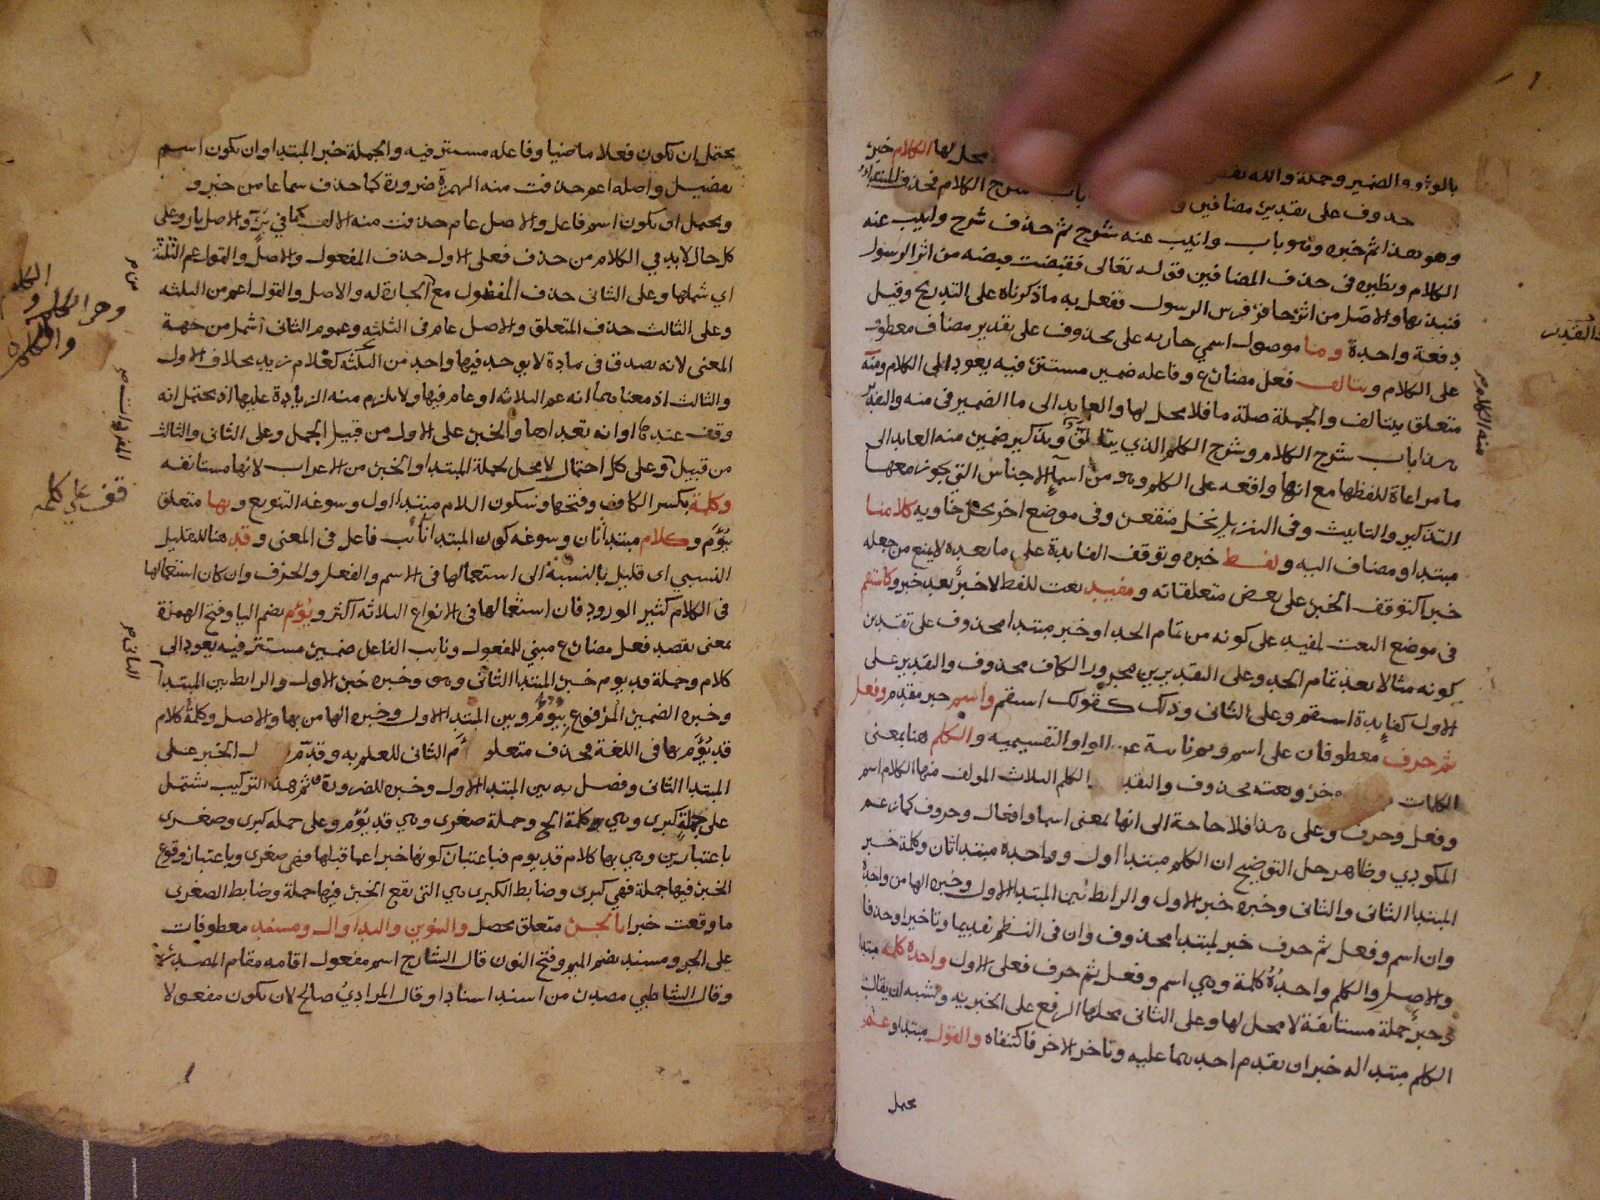 بالواو والضمير وجملة والله
محل لها الكلام خبر
حذوف على تقدير مضافين
باب شرح الكلام فحذف المبتداء
وهو هذا ثم خبره وهو باب وانيب عنه شرح ثم حذف شرح وانيب عنه
الكلام ونظيره في حذف المضافين قوله تعالى فقبضت قبضه من اثر الرسول
فنبذتها والاصل من اثر حافر فرس الرسول ففعل به ما ذكرناه على التدريج وقيل
دفعة واحدة وما موصول اسمي جار به على محذوف على تقدير مضاف معطوف
على الكلام ويتالف فعل مضارع وفاعله ضمير مستتر فيه يعود الى الكلام ومنه
متعلق بيتالف والجملة صلة ما فلا محل لها والعايد الى ما الضمير في منه والتقدير
هذا باب شرح الكلام وشرح الكلم الذي يتالف وتذكير ضمير منه العايد الى
ما مراعاة للفظها مع انها واقعه على الكلم وهو من اسماء الاجناس التي يجوز معها
التذكير والتانيث وفي التنزيل نخل منقعر وفي موضع اخر نخل خاويه كلامنا
مبتدا ومضاف اليه ولفظ خبره وتوقف الفايدة على ما بعده لا يمنع من جعله
خبرا كتوقف الخبر على بعض متعلقاته ومفيد نعت للفظ لا خبر بعد خبر وكاستقم
في موضع النعت لمفيد على كونه من تمام الحد او خبر مبتدا محذوف على تقدير
كونه مثالا بعد تمام الحد وعلى التقديرين مجرور الكاف محذوف والتقدير على
الاول كفايدة استقم وعلى الثاني وذلك كقولك استقم واسم خبر مقدم وفعل
ثم حرف معطوفان على اسم وثم نائبة عن الواو التقسيميه والكلم هنا بمعنى
الكلمات مؤخر ونعته محذوف والتقدير الكلم الثلاث المولف منها الكلام اسم
وفعل وحرف وعلى هذا فلا حاجة الى انها بمعنى اسما وافعال وحروف كما زعم
المكودي وظاهر حل التوضيح ان الكلم مبتدا اول وواحده مبتدا ثان وكلمة خبر
المبتدا الثاني والثاني وخبره خبر الاول والرابط بين المبتدا الاول وخبره الها من واحده
وان اسم وفعل ثم حرف خبر لمبتدا محذوف وان في النظم تقديما وتاخيرا وحذفا
والاصل والكلم واحده كلمة وهي اسم وفعل ثم حرف فعلى الاول واحده كلمه مبتدا
وخبر جملة مستانفة لا محل لها وعلى الثاني محلها الرفع على الخبريه ويشبه ان يقال
الكلم مبتدا له خبران تقدم احدهما عليه وتاخر الاخر فاكتنفاه والقول مبتدا وعم
يحتمل
منه الكلام
يحتمل ان يكون فعلا ماضيا وفاعله مستتر فيه والجملة خبر المبتدا وان يكون اسم
تفضيل واصله اعم حذفت منه الهمزة ضرورة كما حذف سماعا من خير و
ويحتمل ان يكون اسم فاعل والاصل عام حذفت منه الالف كما في بر والاصل بار وعلى
كل حال لابد في الكلام من حذف فعلى الاول حذف المفعول والاصل والقول عم الثلثة
اي شملها وعلى الثاني حذف المفضول مع الجارة له والاصل والقول اعم من الثلثه
وعلى الثالث حذف المتعلق والاصل عام في الثلثه وعموم الثاني اشمل من جهة
المعنى لانه يصدق في مادة لا يوجد فيها واحد من الثلثه كغلام زيد بخلاف الاول
والثالث اذ معناهما انه عم الثلاثه او عام فيها ولا يلزم منه الزيادة عليها اذ يحتمل انه
وقف عندها او انه تعداها والخبر على الاول من قبيل الجمل وعلى الثاني والثالث
من قبيل وعلى كل احتمال لا محل لجملة المبتدا والخبر من الاعراب لانها مستانفه
وكلمة بكسر الكاف وفتحها وسكون اللام مبتدا اول وسوغه التنويع وبها متعلق
بيؤم وكلام مبتدا ثان وسوغه كون المبتدا نائب فاعل في المعنى وقد هنا للتقليل
النسبي اي قليل بالنسبة الى استعمالها في الاسم والفعل والحرف وان كان استعمالها
في الكلام كثير الورود فان استعمالها في الانواع الثلاثه اكثر ويؤم بضم اليا وفتح الهمزة
بمعنى يقصد فعل مضارع مبني للمفعول ونايب الفاعل ضمير مستتر فيه يعود الى
كلام وجملة قد يوم خبر المبتدا الثاني وهو وخبره خبر الاول والرابط بين المبتدا
وخبره الضمير المرفوع بيؤم وبين المبتدا الاول وخبره الها من بها والاصل وكلمة كلام
قد يؤم بها في اللغة فحذف متعلق الثاني للعلم به وقدم الخبر على
المبتدا الثاني وفصل به بين المبتدا الاول وخبره للضرورة ثم هذا التركيب يشتمل
على جملة كبرى وهي وكلمة الخ وجملة صغرى وهي قد يؤم وعلى جملة كبرى وصغرى
باعتبارين وهي بها كلام قد يوم فباعتبار كونها خبرا عما قبلها فهي صغرى وباعتبار وقوع
الخبر فيها جملة فهي كبرى وضابط الكبرى هي التي يقع الخبر فيها جملة وضابط الصغرى
ما وقعت خبرا بالجر متعلق بحصل والتنوين والندا وال ومسند معطوفات
على الجر ومسند بضم الميم وفتح النون قال الشارح اسم مفعول اقامه مقام المصدر
وقال الشاطبي مصدر من اسند اسنادا وقال المرادي صالح لان يكون مفعولا
قف على كلمة